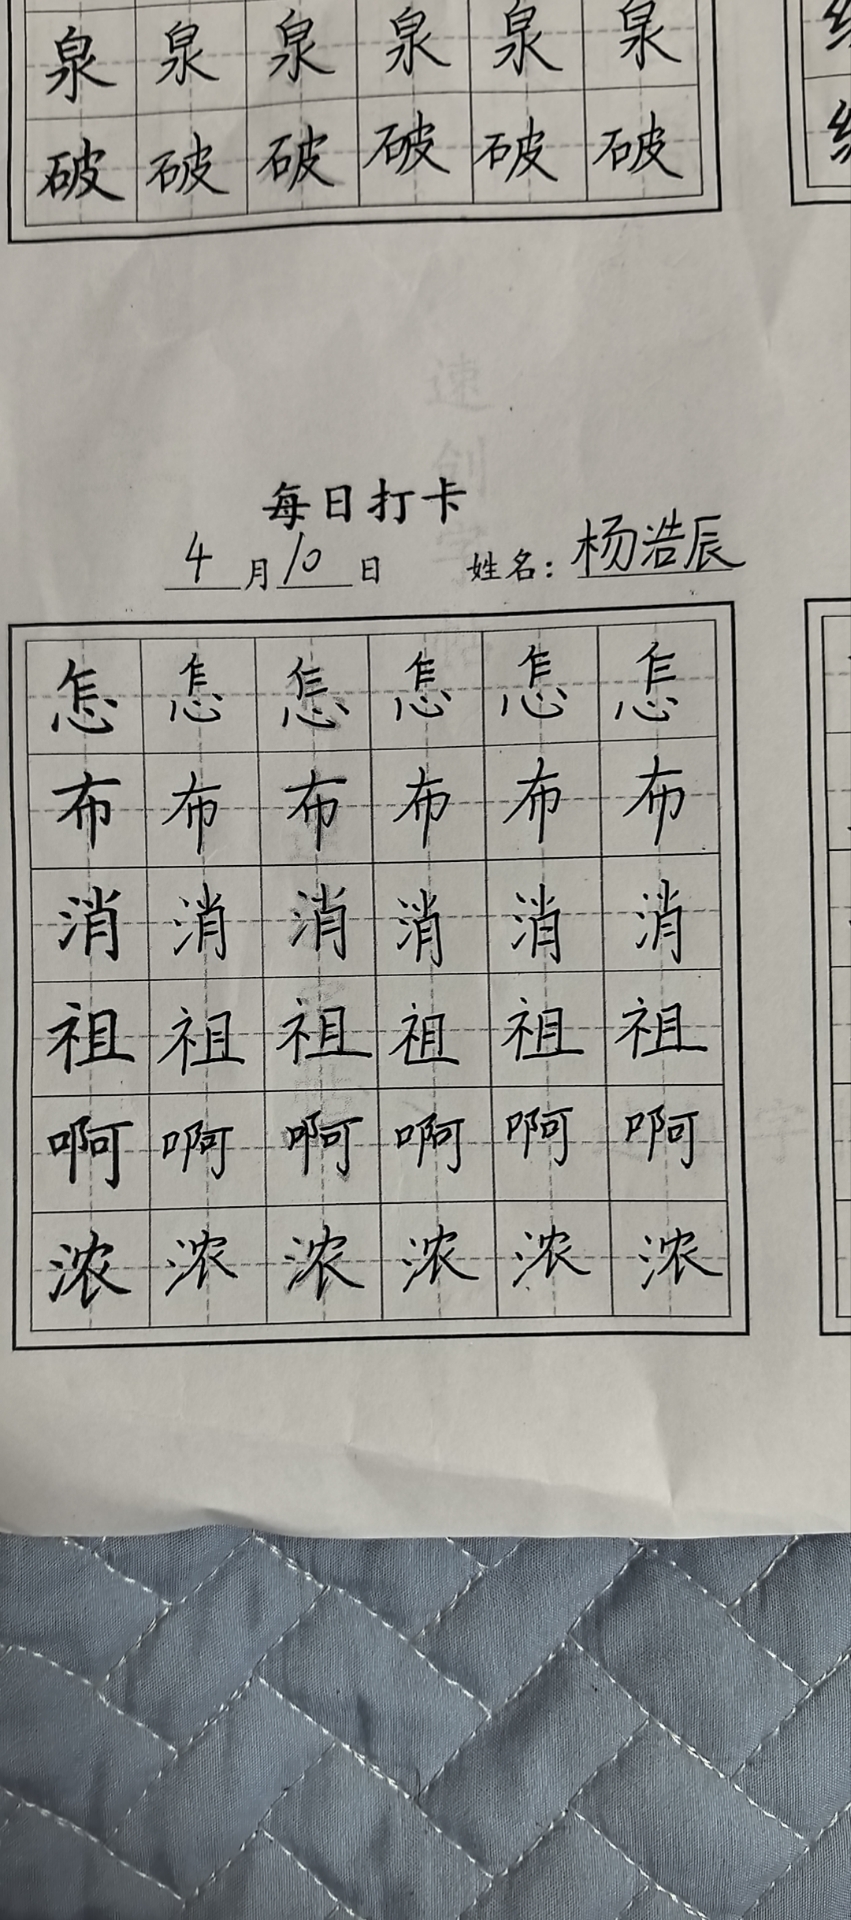 泉泉泉泉泉泉
破破破破破破
速创字帖
每日打卡
4月10日 姓名：杨浩辰
怎怎怎怎怎怎
布布布布布布
消消消消消消
祖祖祖祖祖祖
啊啊啊啊啊啊
浓浓浓浓浓浓